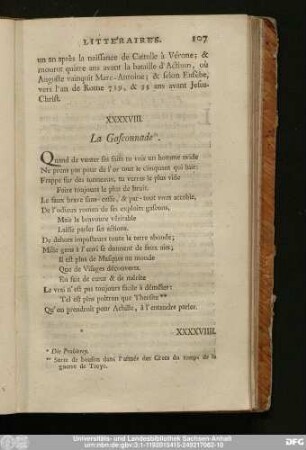 LITTÉRAIRES. 107
un an après la naissance de Catulle à Vérone; &
mourut quinze ans avant la bataille d'Actium, où
Auguste vainquit Marc-Antoine; & selon Eusébe,
vers l'an de Rome 719, & 35 ans avant Jesus-
Christ.
XXXXVIII.
La Gasconnade*.
Quand de vanter ses faits tu vois un homme avide
Ne prens pas pour de l'or tout le clinquant qui luit:
Frappe sur des tonneaux, tu verras le plus vide
Faire toujours le plus de bruit.
Le faux brave sans-cesse, & par-tout nous accable,
De l'odieux roman de ses exploits gascons,
Mais le bravoure véritable
Laisse parler ses actions.
De dehors imposteurs toute la terre abonde;
Mille gens à l'envi se donnent de faux airs;
Il est plus de Masques au monde
Que de Visages découverts.
En fait de cœur & de mérite
Le vrai n'est pas toujours facile à démêler:
Tel est plus poltron que Thersite**
Qu'on prendroit pour Achille, à l'entendre parler.
XXXXVIIII.
* Die Pralerey.
** Sorte de bouffon dans l'armée des Grecs du temps de la
guerre de Troye.
Universitäts- und Landesbibliothek Sachsen-Anhalt
urn:nbn:de:gbv:3:1-1192015415-249217662-18
DFG